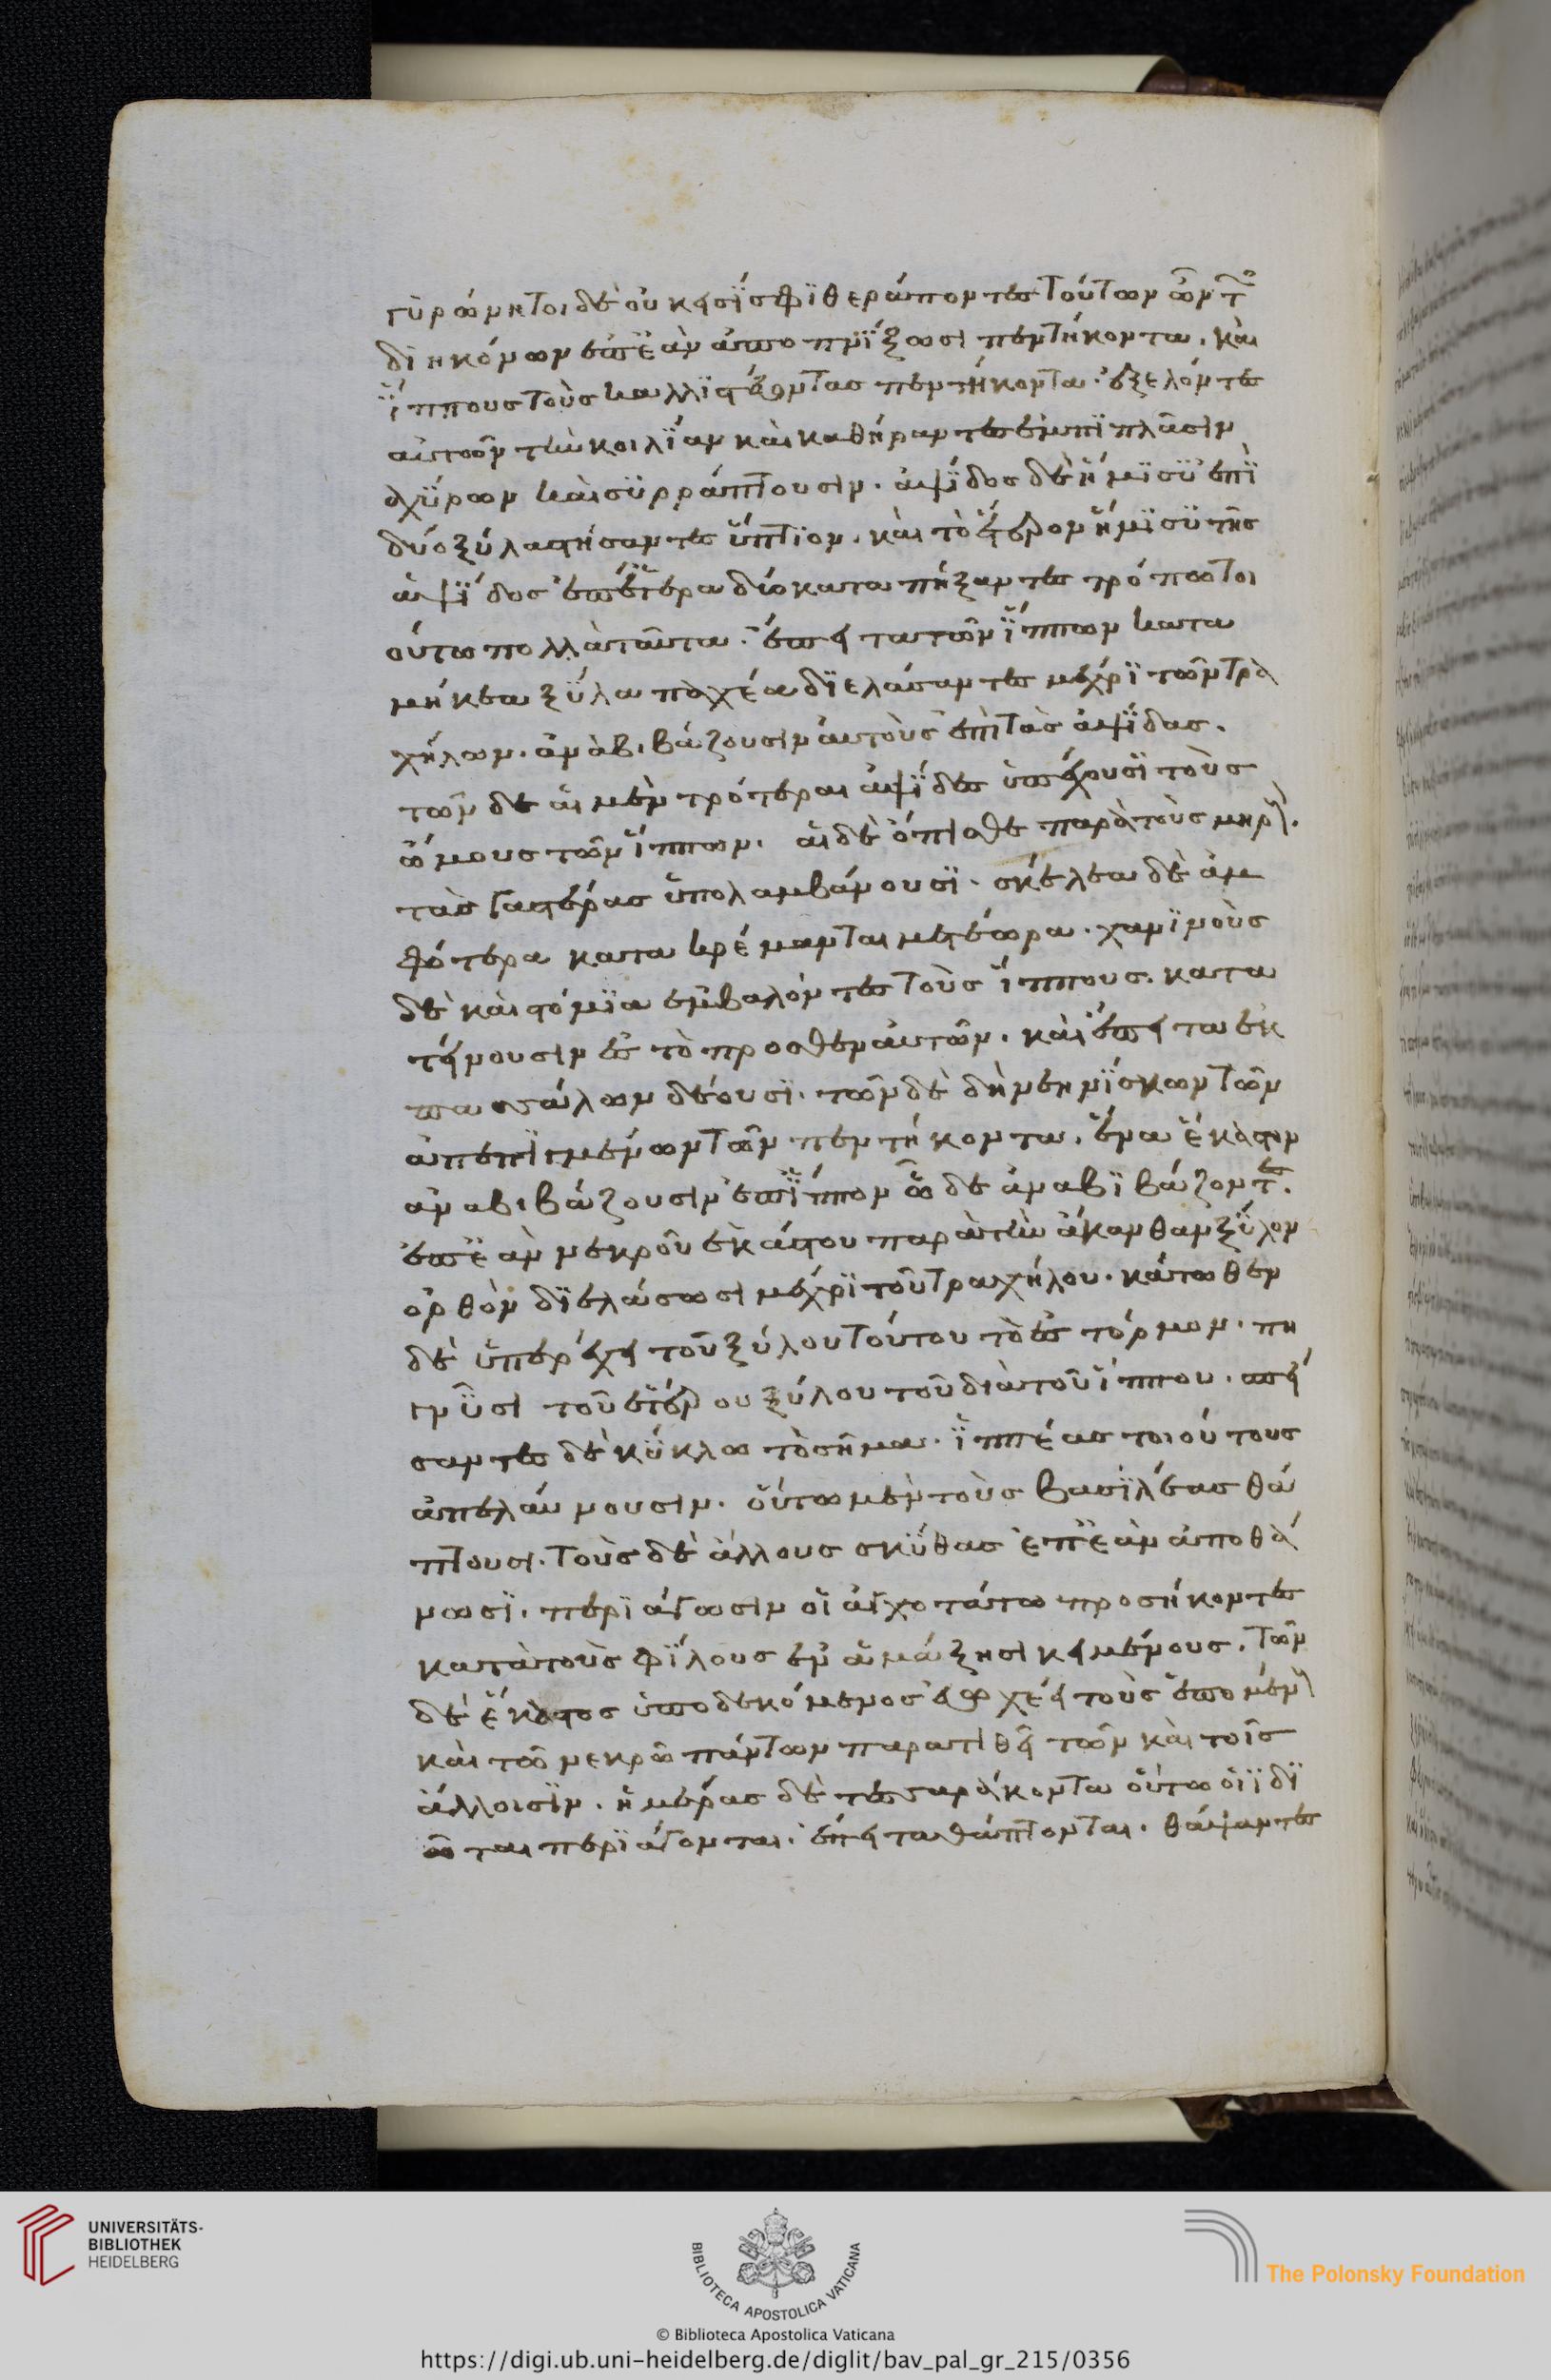 γυρώνητοι δὲ οὐκ εἰσΐ σφϊ θεράποντες τούτων ὦν τῶν
διηκόνων ἐπεὰν ἀποπνΐξωσι πεντήκοντα. καὶ
ΐππους τοὺς καλλϊστεύοντας πεντήκοντα. ἐξελόντες
αὐτῶν τὴν κοιλΐαν καὶ καθήραντες ἐμπϊπλᾶσιν
ἀχΰρων καὶ συρράπτουσιν. ἁψΐδος δὲ ἥμϊσϋ ἐπῒ
δύο ξύλα στήσαντες ὕπτϊον. καὶ τὸ ἕτερον ἥμϊσϋ τῆς
ἁψΐδος ἐπ' ἕτερα δύο καταπήξαντες τρόπω τοι
ούτω πολλὰ ταῦτα. ἔπειτα τῶν ΐππων κατα
μήκεα ξΰλα παχέα δϊελάσαντες μέχρϊ τῶν τρα
χήλων. ἀναβιβάζουσιν αὐτοὺς ἐπὶ τὰς ἁψΐδας.
τῶν δὲ αἱ μὲν πρότεραι ἁψΐδες ὑπέχουσϊ τοὺς
ὤμους τῶν ΐππων. αἱ δὲ ὄπισθε παρὰ τοὺς μηρούς.
τὰς γαστέρας ὑπολαμβάνουσϊ. σκέλεα δὲ ἀμ
φότερα κατακρέμανται μετέωρα. χαλινοὺς
δὲ καὶ στόμϊα ἐμβαλόντες τοὺς ΐππους. κατα
τείνουσιν ἐς τὸ πρόσθεν αὐτῶν. καὶ ἔπειτα ἐκ
πασσάλων δέουσϊ. τῶν δὲ δὴ νεηνΐσκων τῶν
ἀπεπνιγμένων τῶν πεντήκοντα. ἕνα ἕκαστον
ἀναβιβάζουσιν ἐπ' ΐππον ὧδε ἀναβϊβάζοντες.
ἐπεὰν νεκροῦ ἑκάστου παρὰ τὴν ἄκανθαν ξΰλον
ὀρθὸν δϊελάσωσι μέχρϊ τοῦ τραχήλου. κάτωθεν
δὲ ὑπερέχει τοῦ ξύλου τούτου τὸ ἐς τόρμον. πη
γνῦσι τοῦ ἑτέρου ξύλου τοῦ διὰ τοῦ ΐππου. ἐπιστή
σαντες δὲ κΰκλω τὸ σῆμα. ϊππέας τοιούτους
ἀπελαύνουσιν. οὕτω μὲν τοὺς βασϊλέας θά
πτουσι. τοὺς δὲ ἄλλους σκΰθας ἐπεὰν ἀποθά
νωσϊ. περϊάγωσιν οἱ ἀγχοτάτω προσήκοντες
κατὰ τοὺς φΐλους ἐν ἁμάξησι κειμένους. τῶν
δὲ ἕκαστος ὑποδεκόμενος εὐωχέει τοὺς ἑπομένους
καὶ τῶ νεκρῶ πάντων παρατιθεῖ τῶν καὶ τοῖς
ἄλλοισϊν. ἡμέρας δὲ τεσσαράκοντα οὕτω οἱ ϊδϊ
ῶται περϊάγονται. ἔπειτα θάπτονται. θάψαντες
UNIVERSITÄTS-
BIBLIOTHEK
HEIDELBERG
BIBLIOTECA APOSTOLICA VATICANA
The Polonsky Foundation
© Biblioteca Apostolica Vaticana
https://digi.ub.uni-heidelberg.de/diglit/bav_pal_gr_215/0356